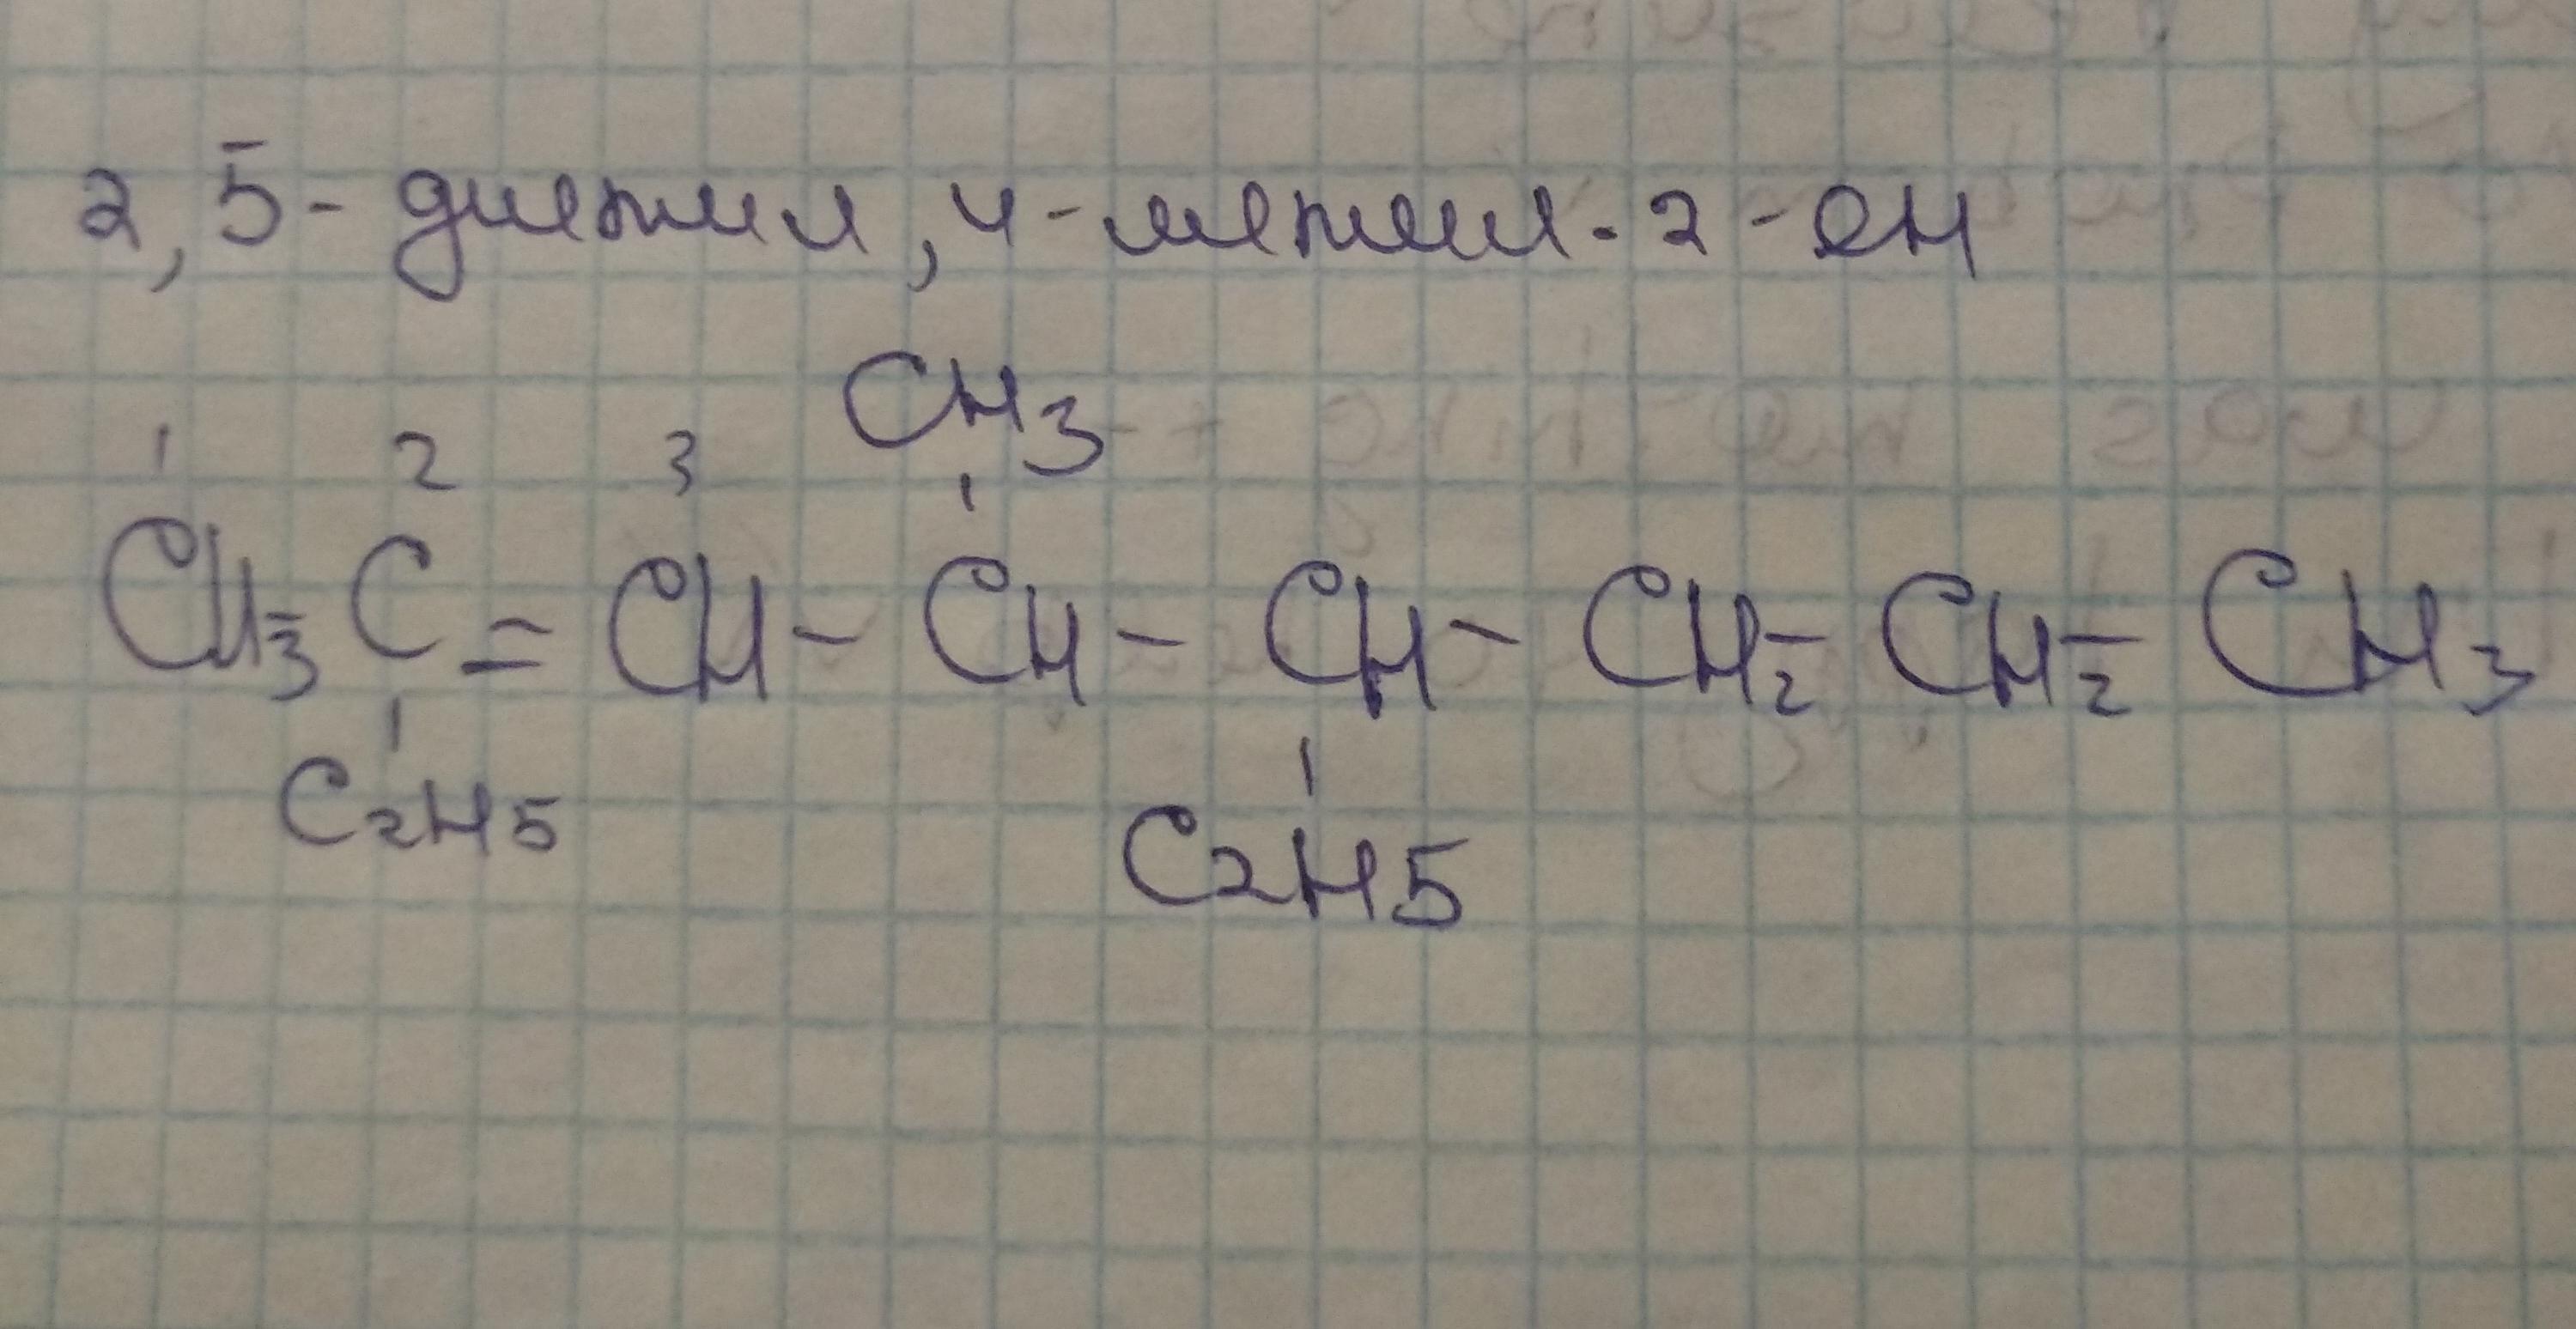 2,5-диетил,4-метил-2-ен
CH3
1 2 3
CH3-C=CH-CH-CH-CH2-CH2-CH3
C2H5 C2H5